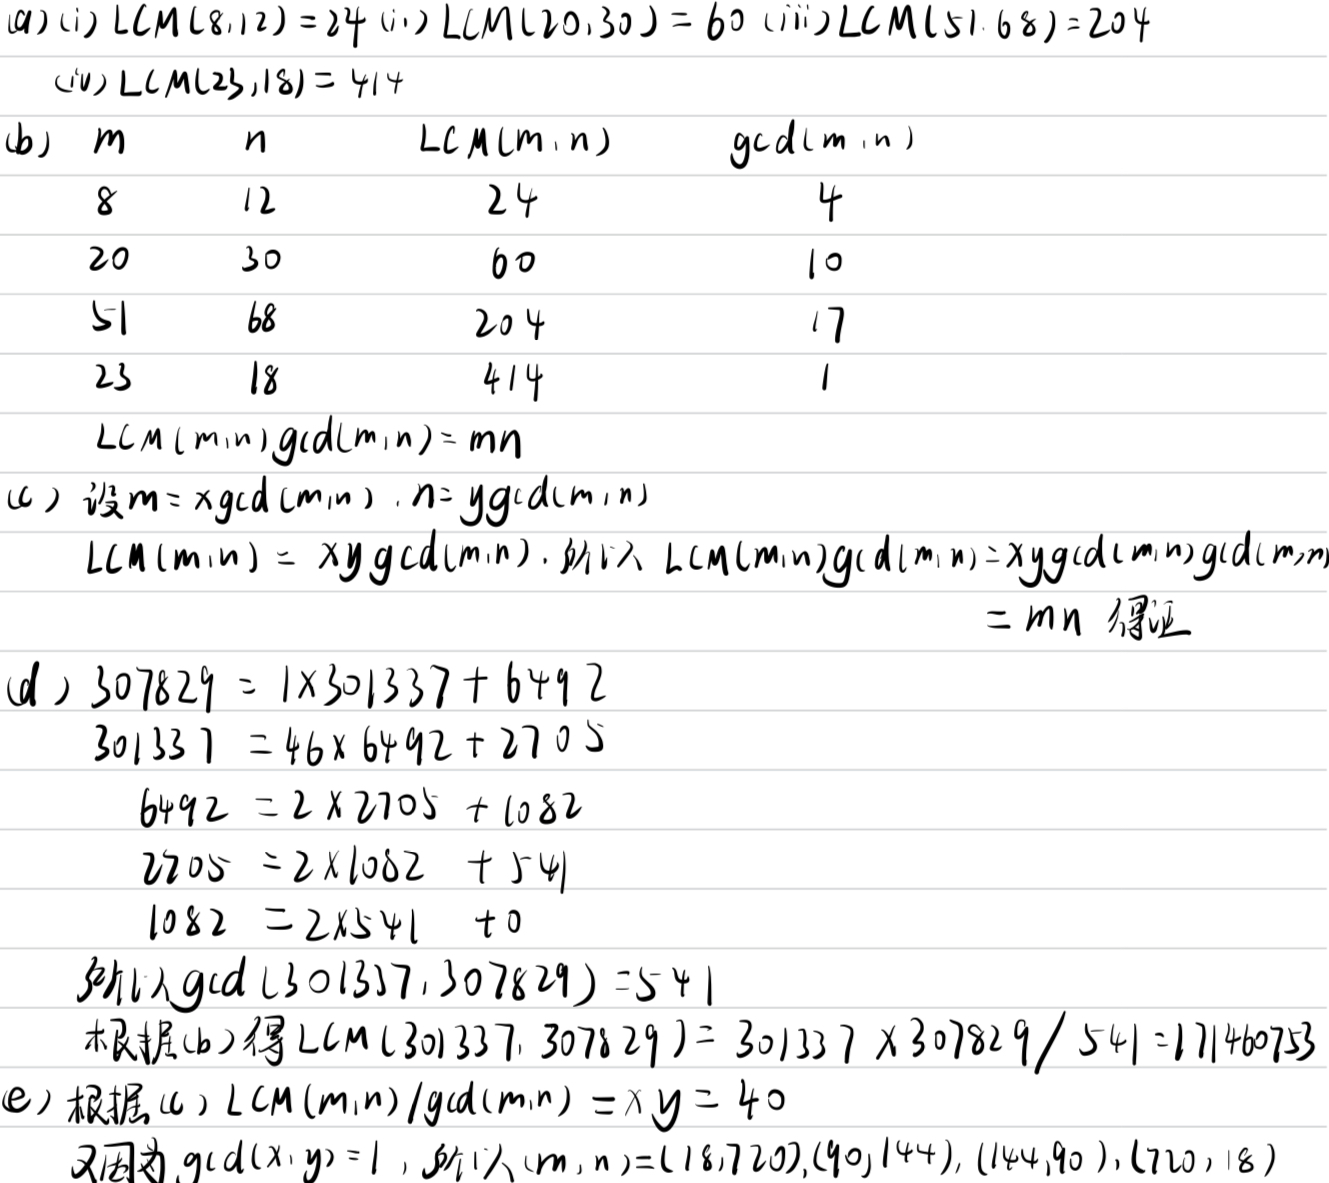 (a) (i) LCM(8,12)=24 (ii) LCM(20,30)=60 (iii) LCM(51.68)=204
(iv) LCM(23,18)=414
(b) m n LCM(m,n) gcd(m,n)
8 12 24 4
20 30 60 10
51 68 204 17
23 18 414 1
LCM(m,n)gcd(m,n)=mn
(c) 设m=xgcd(m,n). n=ygcd(m,n)
LCM(m,n)=xygcd(m,n). 所以 LCM(m,n)gcd(m,n)=xygcd(m,n)gcd(m,n)
=mn 得证
(d) 307829=1×301337+6492
301337=46×6492+2705
6492=2×2705+1082
2705=2×1082+541
1082=2×541+0
所以gcd(301337,307829)=541
根据(b)得LCM(301337,307829)=301337×307829/541=171460753
(e) 根据(c) LCM(m,n)/gcd(m,n)=xy=40
又因为gcd(x,y)=1, 所以(m,n)=(18,720),(90,144),(144,90),(720,18)